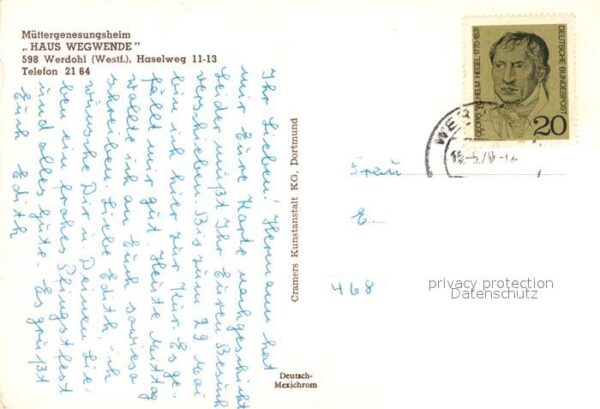 Müttergenesungsheim
„HAUS WEGWENDE"
598 Werdohl (Westf.), Haselweg 11-13
Telefon 21 64
Ihr Lieben! Hermann hat
mir Eure Karte nachgeschickt
Leider müßt Ihr Euren Besuch
verschieben. Bis zum 29. Mai
bin ich hier zur Kur. Es ge-
fällt mir gut. Heute Mittag
wollte ich an Euch sowieso
schreiben. Liebe Edith, ich
wünsche Dir u. Deinen Lie-
ben ein frohes Pfingstfest
und alles gute. Es grüßt
Euch Edith
Cramers Kunstanstalt KG, Dortmund
Deutsch-
Mexichrom
GEORG WILHELM HEGEL 1770-1831
DEUTSCHE BUNDESPOST
20
WER
Frau
E
468
privacy protection
Datenschutz